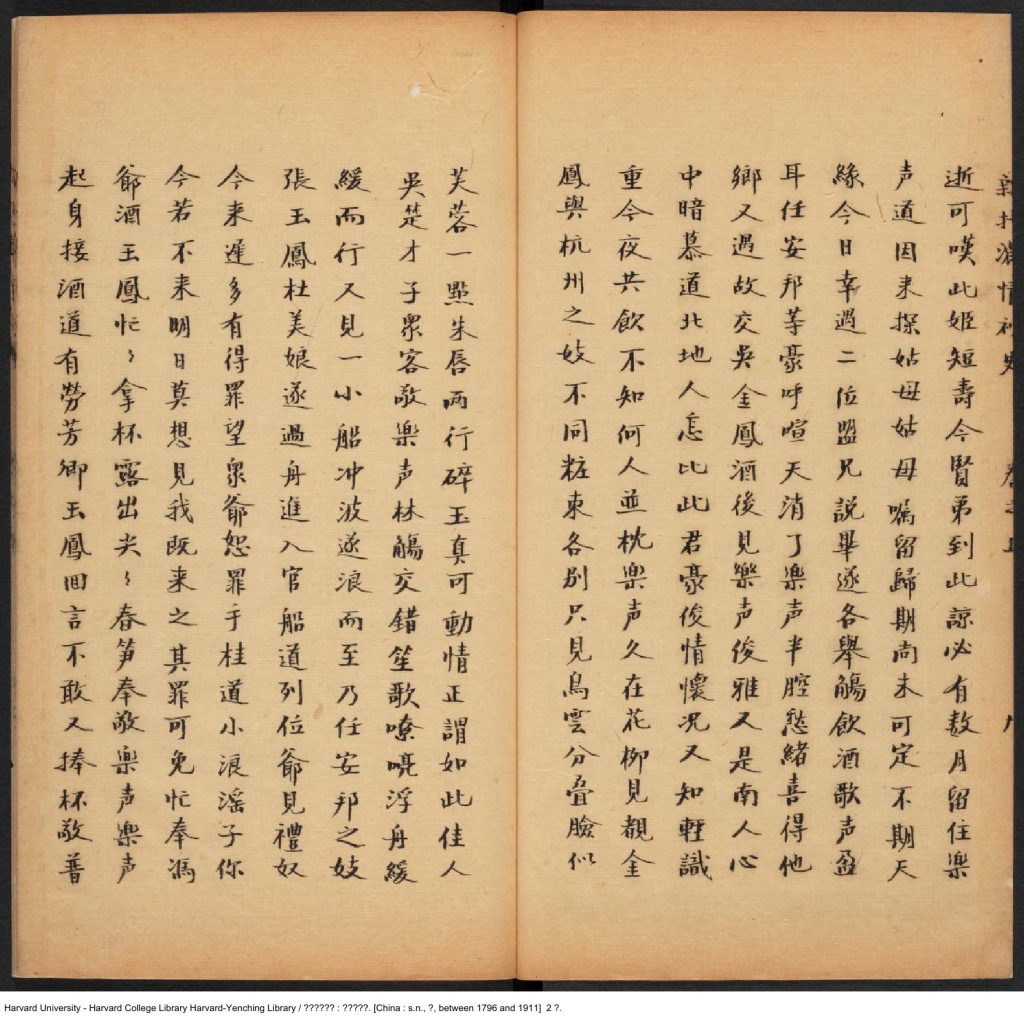 新抄濃情秘史
逝可嘆此姬短壽今賢弟到此諒必有数月留住樂
声道因来探姑母姑母囑留歸期尚未可定不期天
緣今日幸遇二位盟兄説畢遂各舉觴飲酒歌声盈
耳任安邦等豪呼喧天消了樂声半腔愁緒喜得他
鄉又遇故交吳金鳳酒後見樂声俊雅又是南人心
中暗慕道北地人怎比此君豪俊情懷况又知輕識
重今夜共飲不知何人並枕樂声久在花柳見覩金
鳳與杭州之妓不同粧束各别只見烏雲分疊臉似
芙蓉一㸃朱唇兩行碎玉真可動情正謂如此佳人
吳楚才子衆客敬樂声林觴交錯笙歌嘹喨浮舟緩
緩而行又見一小船冲波逐浪而至乃任安邦之妓
張玉鳳杜美娘遂過舟進入官船道列位爺見禮奴
今来遲多有得罪望衆爺恕罪于桂道小浪滛子你
今若不来明日莫想見我既来之其罪可免忙奉馮
爺酒玉鳳忙〻拿杯露出尖〻春笋奉敬樂声樂声
起身接酒道有勞芳卿玉鳳囬言不敢又捧杯敬普
Harvard University - Harvard College Library Harvard-Yenching Library / ?????? : ?????. [China : s.n., ?, between 1796 and 1911] 2 ?.